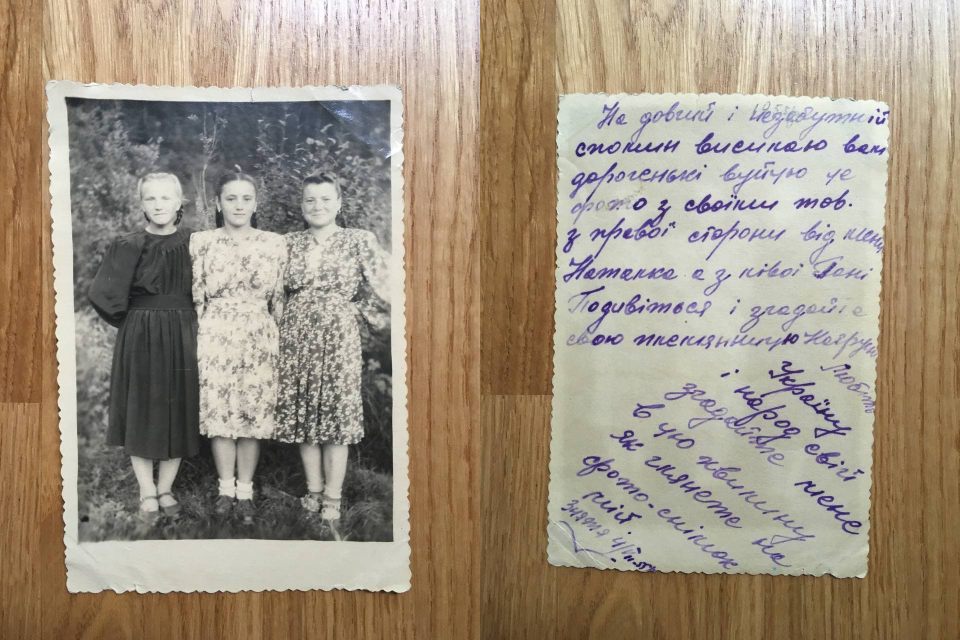 На довгий і незабутній
спомин висилаю вам
дорогенькі вуйцю це
фото з своїми тов.
з правої сторони від мене
Наталка а з лівої Гені
Подивіться і згадайте
свою племінницю
Любіть
Україну
і народ свій
згадайте мене
в цю хвилину
як глянете на
фото-снімок
мій
Знято 4/